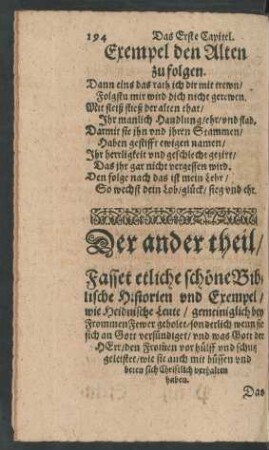 194 Das Erste Capitel.
Exempel den Alten
zu folgen.
Dann eins das rath ich dir mit trewn/
Folgstu mir wird dich nicht gerewen.
Mit fleiß ließ der alten that/
Ihr manlich Handlung/ehr/vnd stad,
Darmit sie jhn vnd jhren Stammen/
Haben gestifft ewigen namen/
Ihr herrligkeit vnd geschlecht geziert/
Das jhr gar nicht vergessen wird.
Den folge nach das ist mein Lehr/
So wechst dein Lob/glück/sieg vnd ehr.
Der ander theil/
Fasset etliche schöne Bib-
lische Historien vnd Exempel/
wie Heidnische Leute/gemeiniglich bey
Frommen Fewer geholet/sonderlich wenn sie
sich an Gott versündiget/vnd was Gott der
HErr/den Fromen vor hülff vnd schutz
geleistet/wie sie auch mit büssen vnd
beten sich Christlich verhalten
haben.
Das